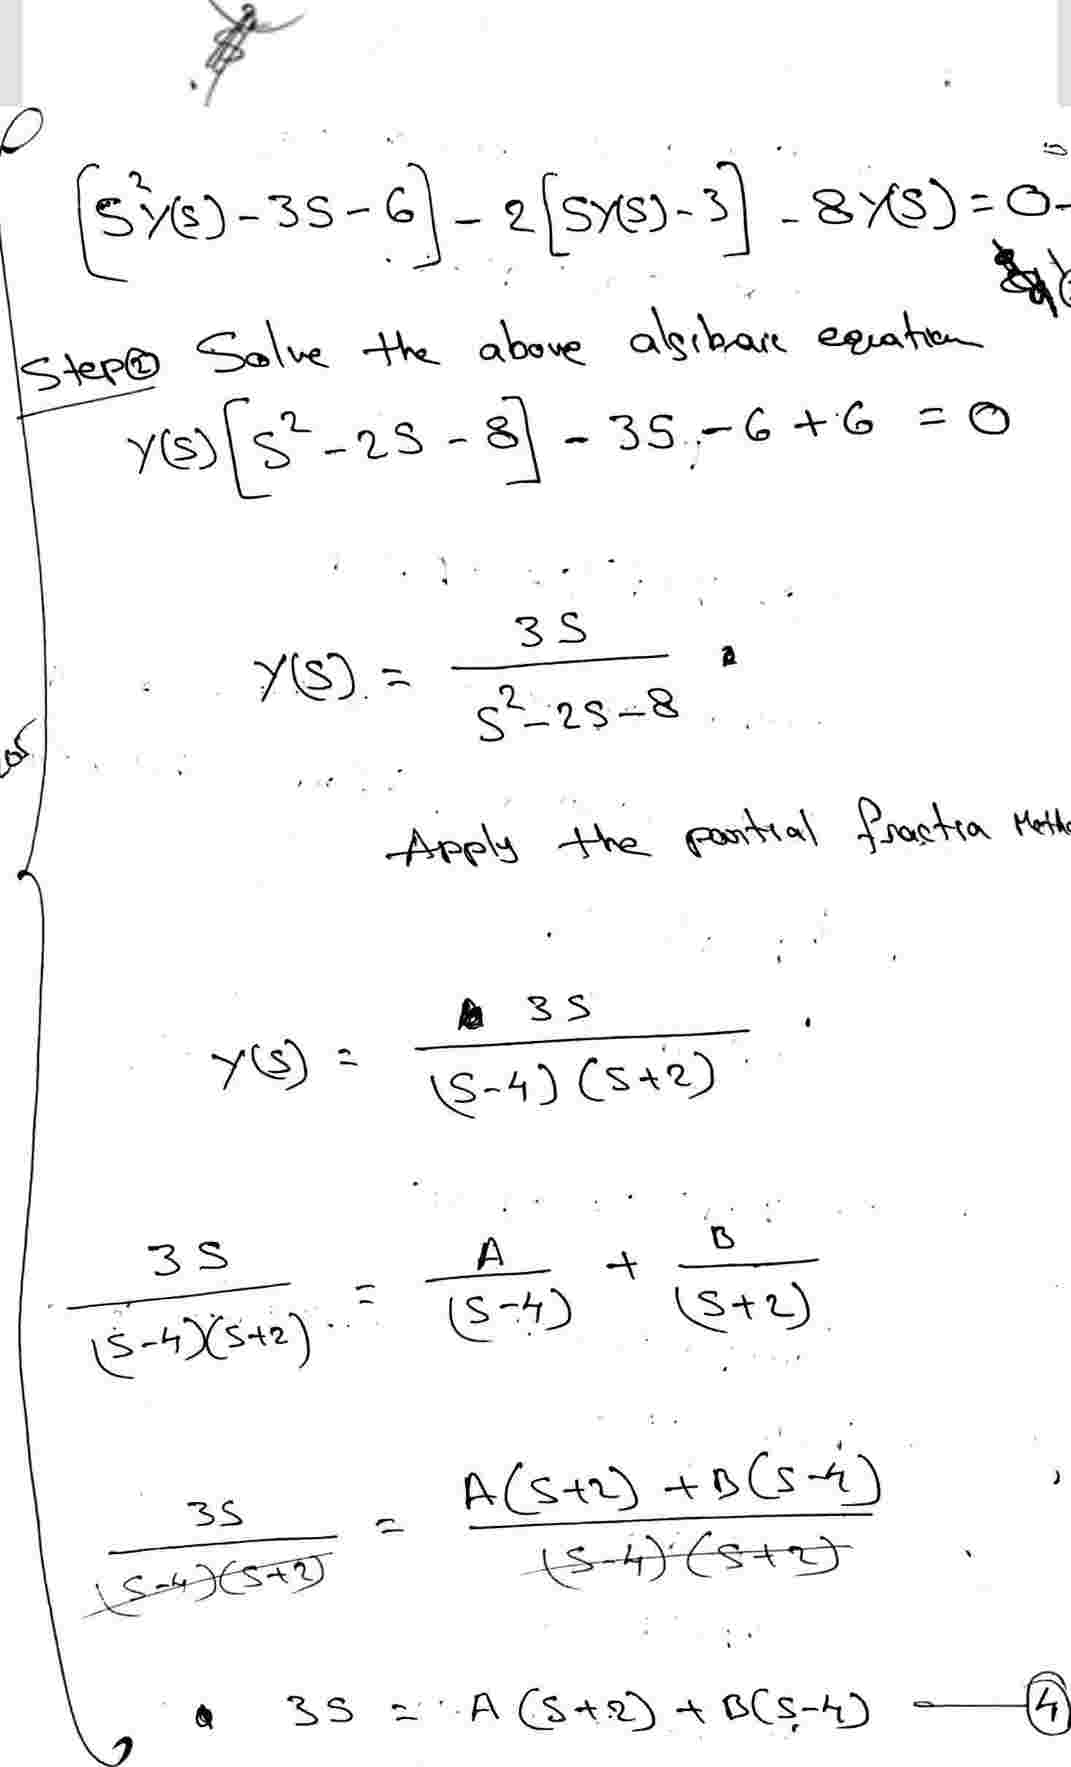 [S²Y(S) - 3S - 6] - 2[SY(S) - 3] - 8Y(S) = 0
Step② Solve the above algibaic equation
Y(S)[S² - 2S - 8] - 3S - 6 + 6 = 0
Y(S) = 3S / S² - 2S - 8
Apply the partial fractia Meth
Y(S) = 3S / (S-4)(S+2)
3S / (S-4)(S+2) = A / (S-4) + B / (S+2)
3S / (S-4)(S+2) = A(S+2) + B(S-4) / (S-4)(S+2)
3S = A(S+2) + B(S-4) — ④